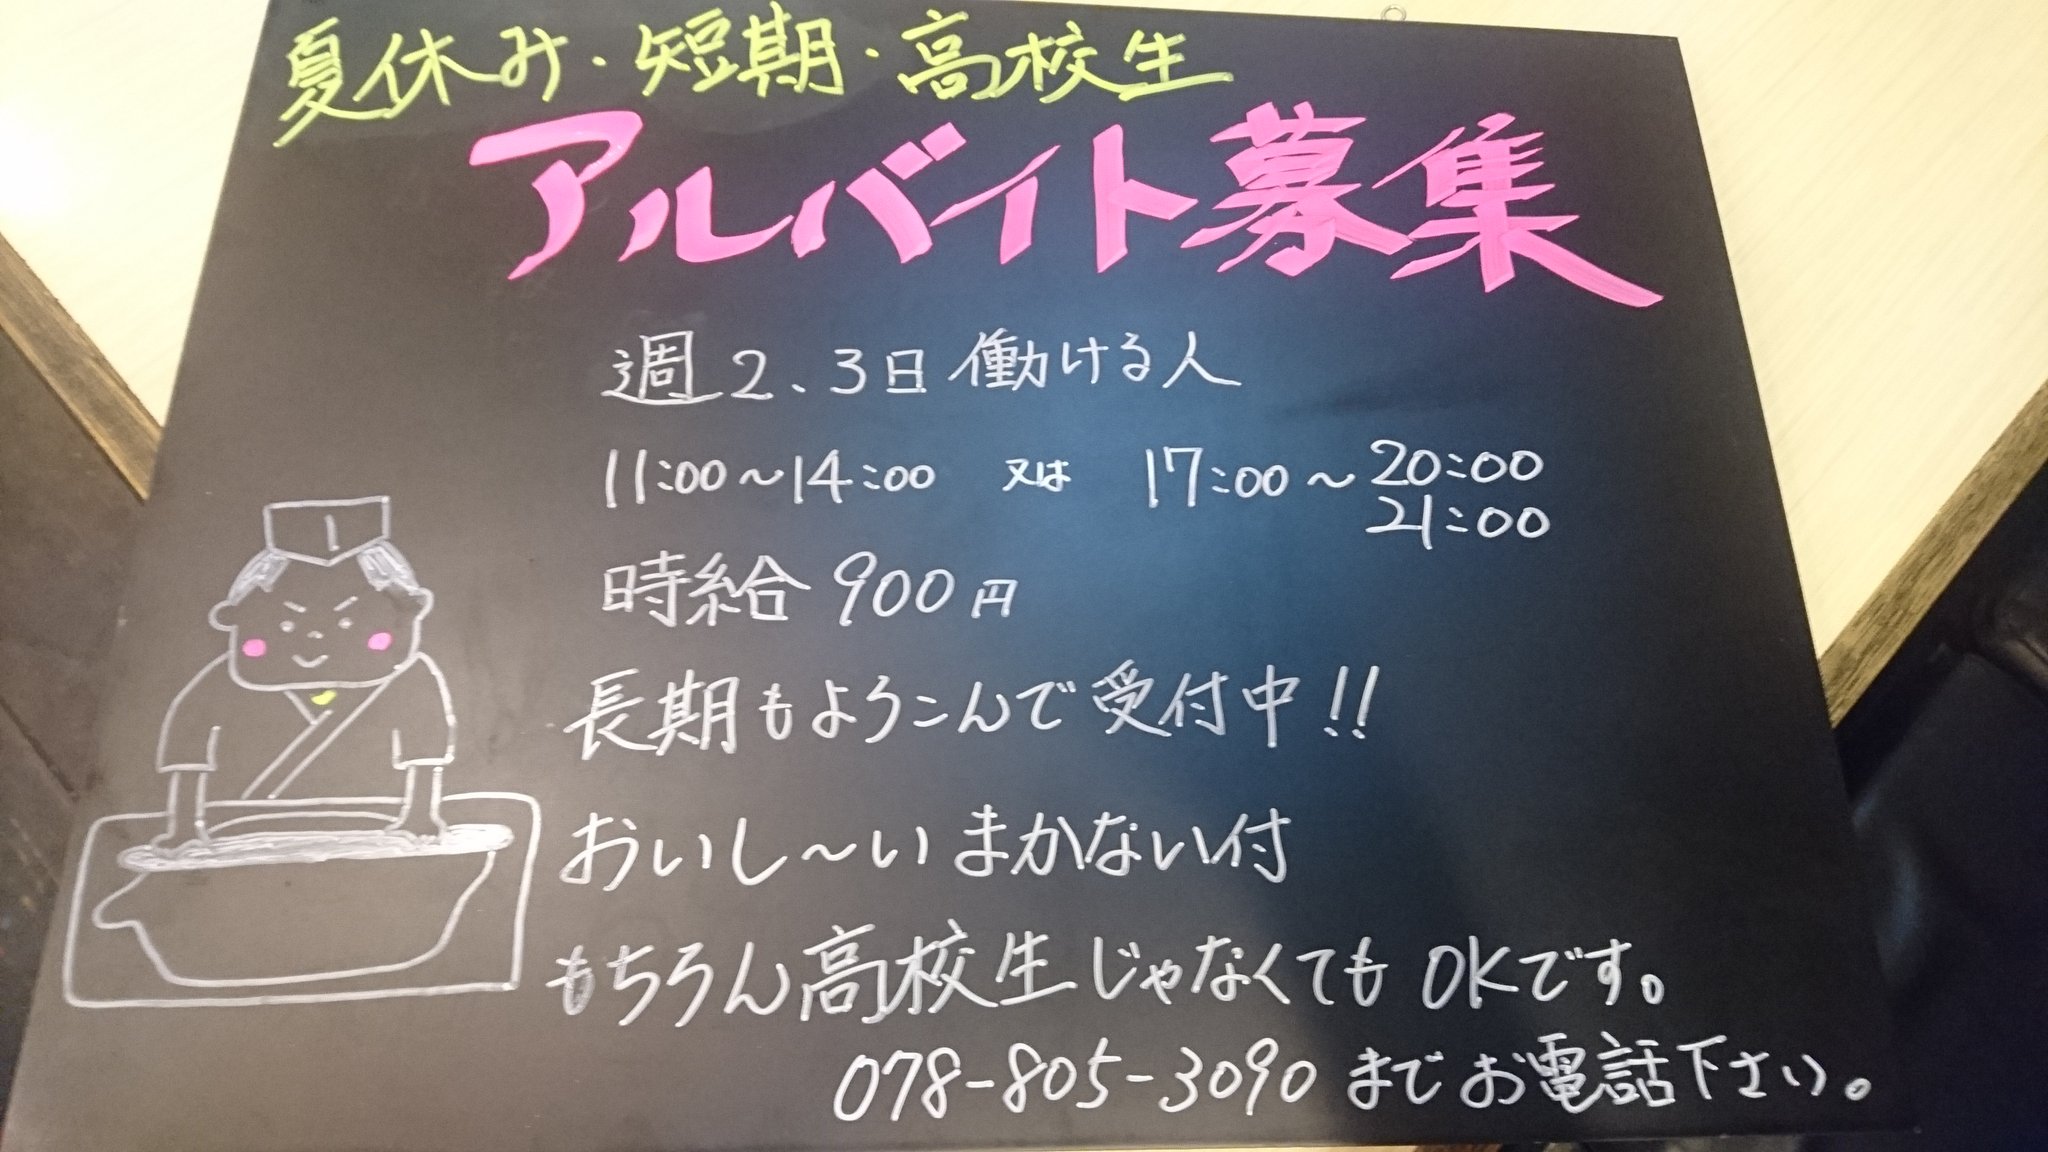 夏休み・短期・高校生
アルバイト募集
週2、3日働ける人
11:00〜14:00 又は 17:00〜20:00
21:00
時給900円
長期もよろこんで受付中!!
おいし〜いまかない付
もちろん高校生じゃなくてもOKです。
078-805-3090までお電話下さい。